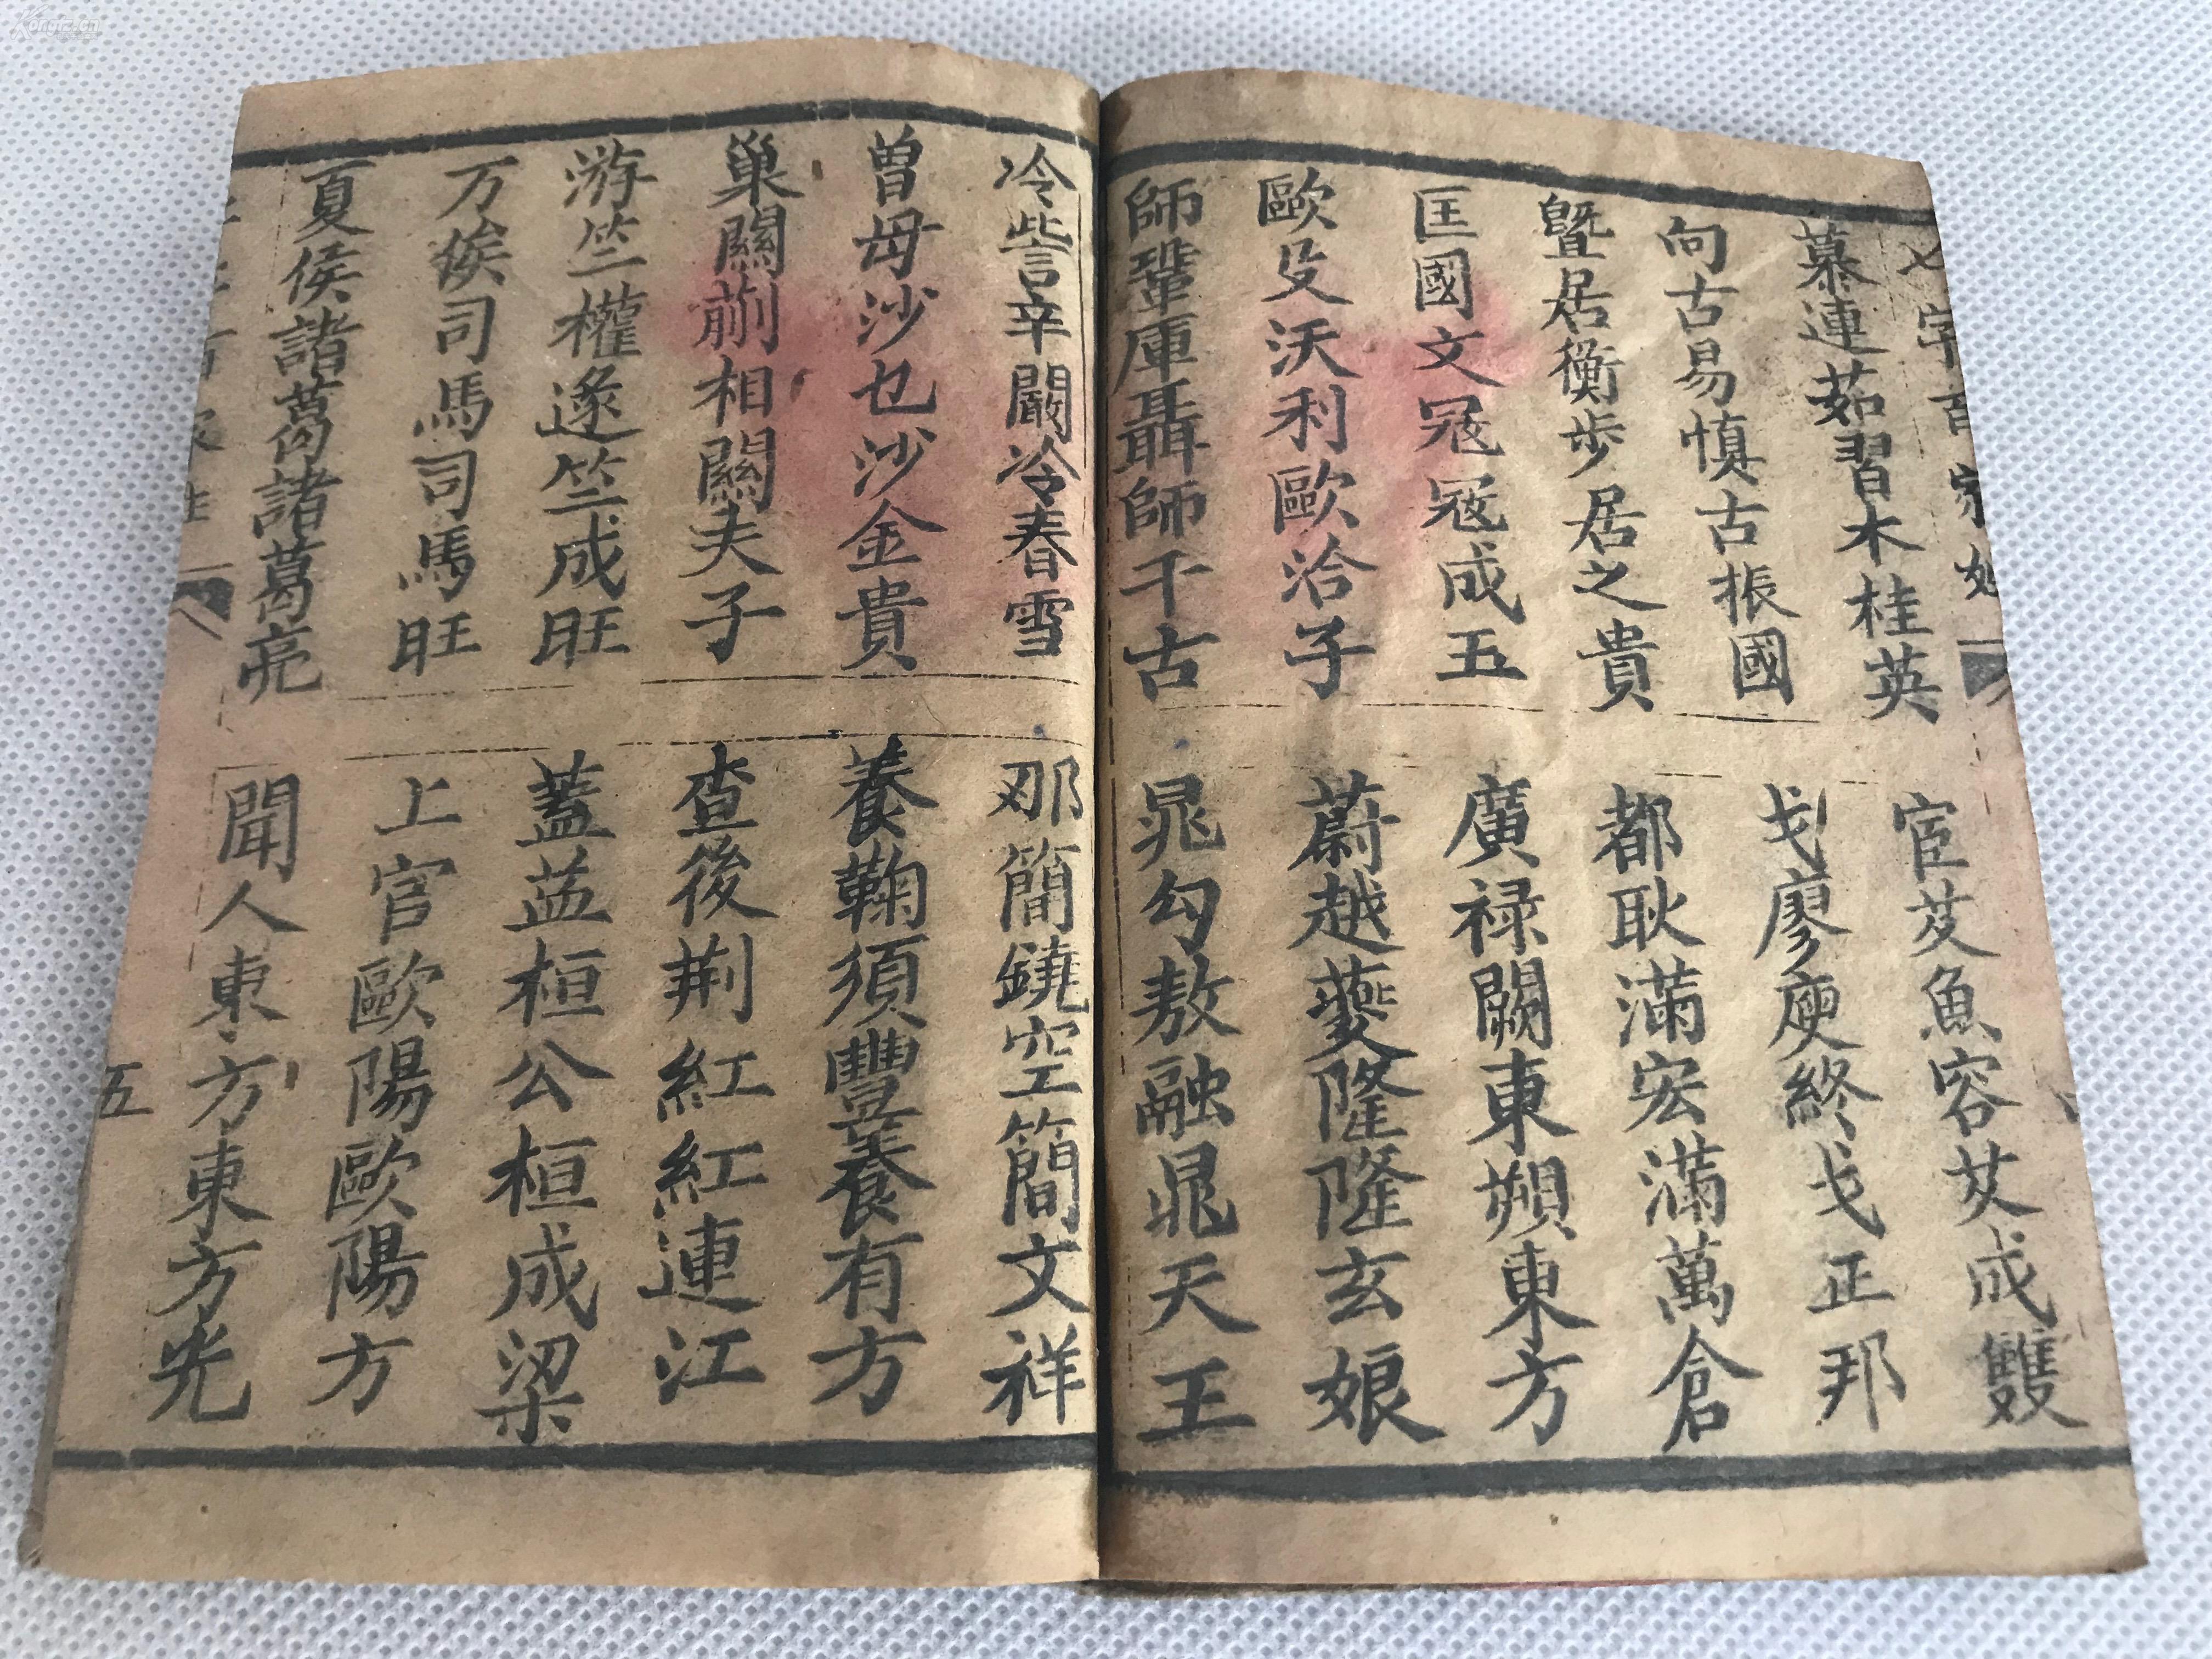 七字百家姓
慕連茹習木桂英
宦艾魚容艾成雙
向古易慎古振國
戈廖庾終戈正邦
暨居衡步居之貴
都耿滿宏滿萬倉
匡國文冦冦成五
廣禄闕東朔東方
歐殳沃利歐治子
蔚越夔隆隆玄娘
師鞏庫聶師千古
晁勾敖融晁天王
冷訾辛闞冷春雪
那簡鐃空簡文祥
曾毋沙乜沙金貴
養鞠須豐養有方
巢關蒯相關夫子
查後荆紅紅連江
游竺權逯竺成旺
蓋益桓公桓成梁
万俟司馬司馬旺
上官歐陽歐陽方
夏侯諸葛諸葛亮
聞人東方東方光
五
Kongfz.cn